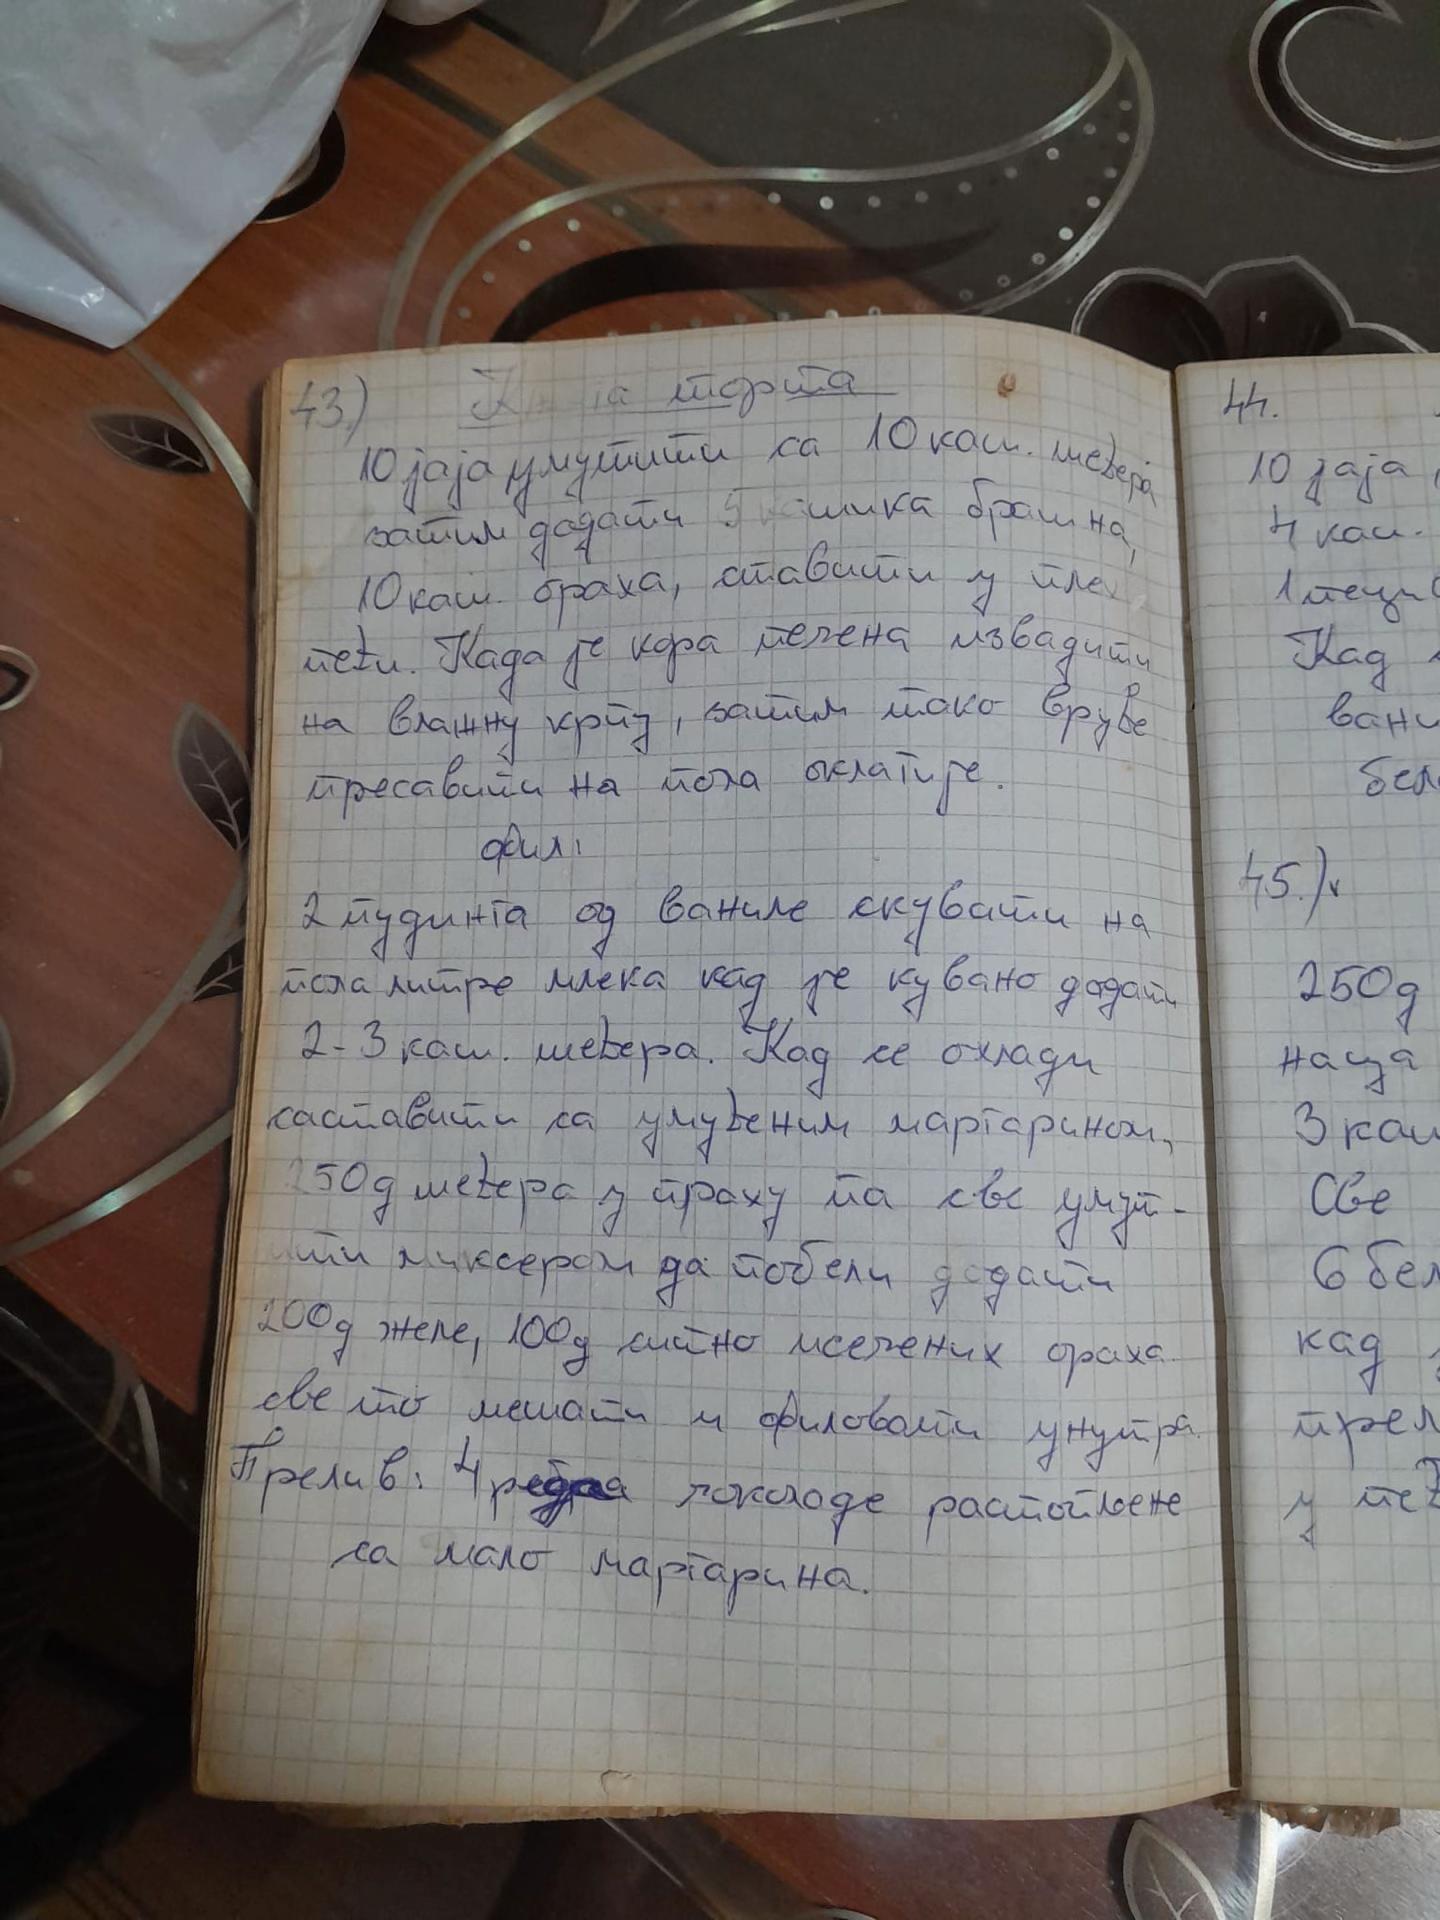 43.) торта
10 јаја умутити са 10 каш. шећера
затим додати 5 кашика брашна,
10 каш. ораха, ставити у
пећи. Када је кора печена извадити
на влажну крпу, затим тако вруће
пресавити на пола
Фил:
2 пудинга од ваниле скувати на
пола литре млека кад је кувано додати
2-3 каш. шећера. Кад се охлади
саставити са умућеним маргарином,
250д шећера у праху па све умут-
ити миксером да побели додати
200д желе, 100д ситно исечених ораха
све то мешати и филовати унутра.
Прелив: 4 ребра чоколаде растопљене
са мало маргарина.
44.
10 јаја,
4 каш.
Кад
45.)
250д
3
Све
6
кад
у